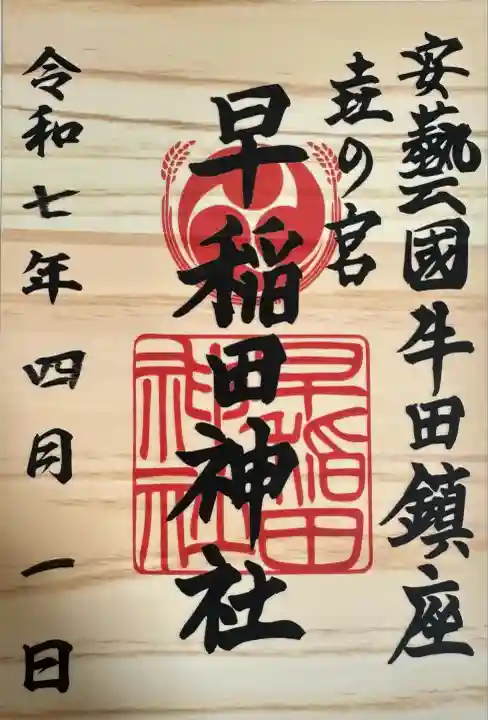 安藝國牛田鎮座
壺の宮
早稲田神社
早稲田神社
令和七年 四月 一日